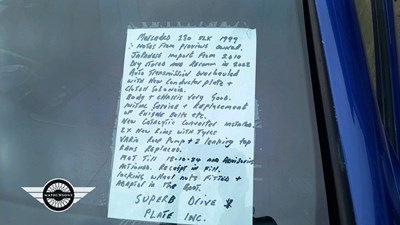 Mersedes 230 SLK 1999
:- Notes from previous owner.
Japanese import from 2010
Dry stored and Recomm in 2022
Auto Transmission overhauled
with New Conductor plate +
Clutch Solenoid.
Body + chassis Very Good.
Initial Service + Replacement
of Engine Belts etc.
New Catalytic Convertor installed
2X New Rims with Tyres
Vario Roof Pump + 2 leaking top
Rams Replaced.
MOT Till 15-10-24 and Remaining
Mileage. Receipts in File.
locking wheel nuts fitted +
Adaptor in the Boot.
SUPERB DRIVE
PLATE INC.
MATHEWSONS